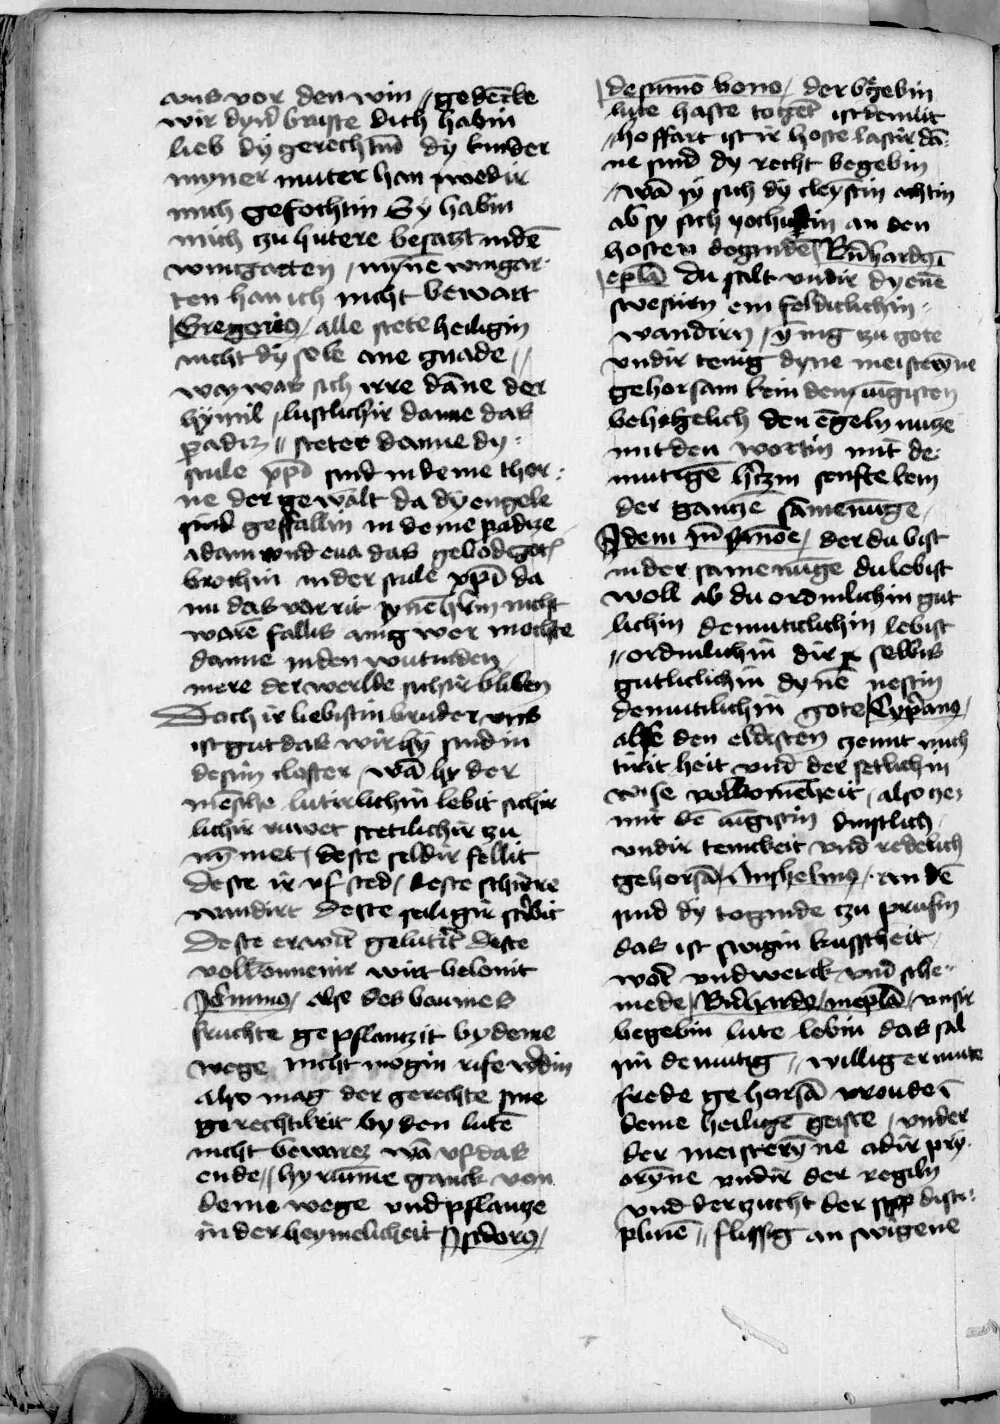 uns vor den win // gedēcke
wir dyn̄ bruste dich habin
lieb dy gerechtin̄ dy kinder
myner muter han wedir
mich gefochtin Sy habin
mich tzu hutere besatzt in dē
wingarten / mynē wingar-
ten han ich nicht bewart
Gregorius / alle stete heiligin
nicht dy sele ane gnade //
way was sich irre dāne der
hymil / lustlichir danne das
padiz // steter danne dy
scule xp̄i sind in deme thor-
ne der gewalt da dy engele
sind gefallin in deme padize
adam und eua das gebod gotꝭ
brochin in der scule xp̄i da
nu das vorrit synē hrin nicht
warē fallis ānig wer mochte
danne in den wutinden
mere der werlde sichir bliben
Doch ir liebistin bruder uns
ist gut das wir hy sind in
desim closter / wā hy der
mēsche lutirlichin lebit sichir
lichir ruwet stetilichir tzu
nȳmet / deste seldir fellit
deste ir uf sted / deste schirre
wandirt deste seiligir st̄bit
Deste er wirt gelutirt deste
volkomenir wirt belonit
Jeronimus / alse des baumes
fruchte gepflantzit by deme
wege nicht mogin rife w̄din
also mag der gerechte sine
gerechtikeit by den lutē
nicht bewarē wā uf das
ende // hy rūme ganck von
deme wege und pflantze
in der heymelicheit Isidorus /
de sūmo bono / der b̓gebin
lute haste toget ist demut
// hoffart ist ir hoste lastir dā-
ne sind dy recht begebin
/ wā sy sich dy cleystin achtin
ab sy sich ꝛochin an den
hosten doginden Bn̄hardus ī
ep̄la du salt undir dynē
swestirn ein feldiclichin
wandirn / ȳnig tzu gote
undir tenig dyne meisterȳne
gehorsam kein dem iūgisten
behegelich den ēgeln nutze
mit den wortin mit de-
mutigē h̓tzin senfte kein
der gantzē samenūge /
Idem in s̄mōe / der du bist
in der samenūge du lebist
woll ab du ordinlichin gut
lichin demuticlichin lebist
// ordinlichin dir selbis
gutliclichin dynē nestin
demutilichin gote Cyp̄anus /
alse den eldisten tzemt mich
tikit heit und der setlichin
wise volkomēheit / also tze-
mit dē iūgistin dinstlich
undir tenickeit und redelich
gehorsā / Anshelmus / an dē
sind dy toginde tzu prufin
das ist swigin kusscheit
wort und werck und sche-
mede Bn̄hardus / in epl̄a / unsir
begebin lute lebin das sal
sin demutig // williger mute
frede gehorsā vroude ī
deme heiligē geiste / under
der meisterȳne adir pry-
orȳne undir der regiln
und der tzucht der disci-
plinē // flissig an swigene